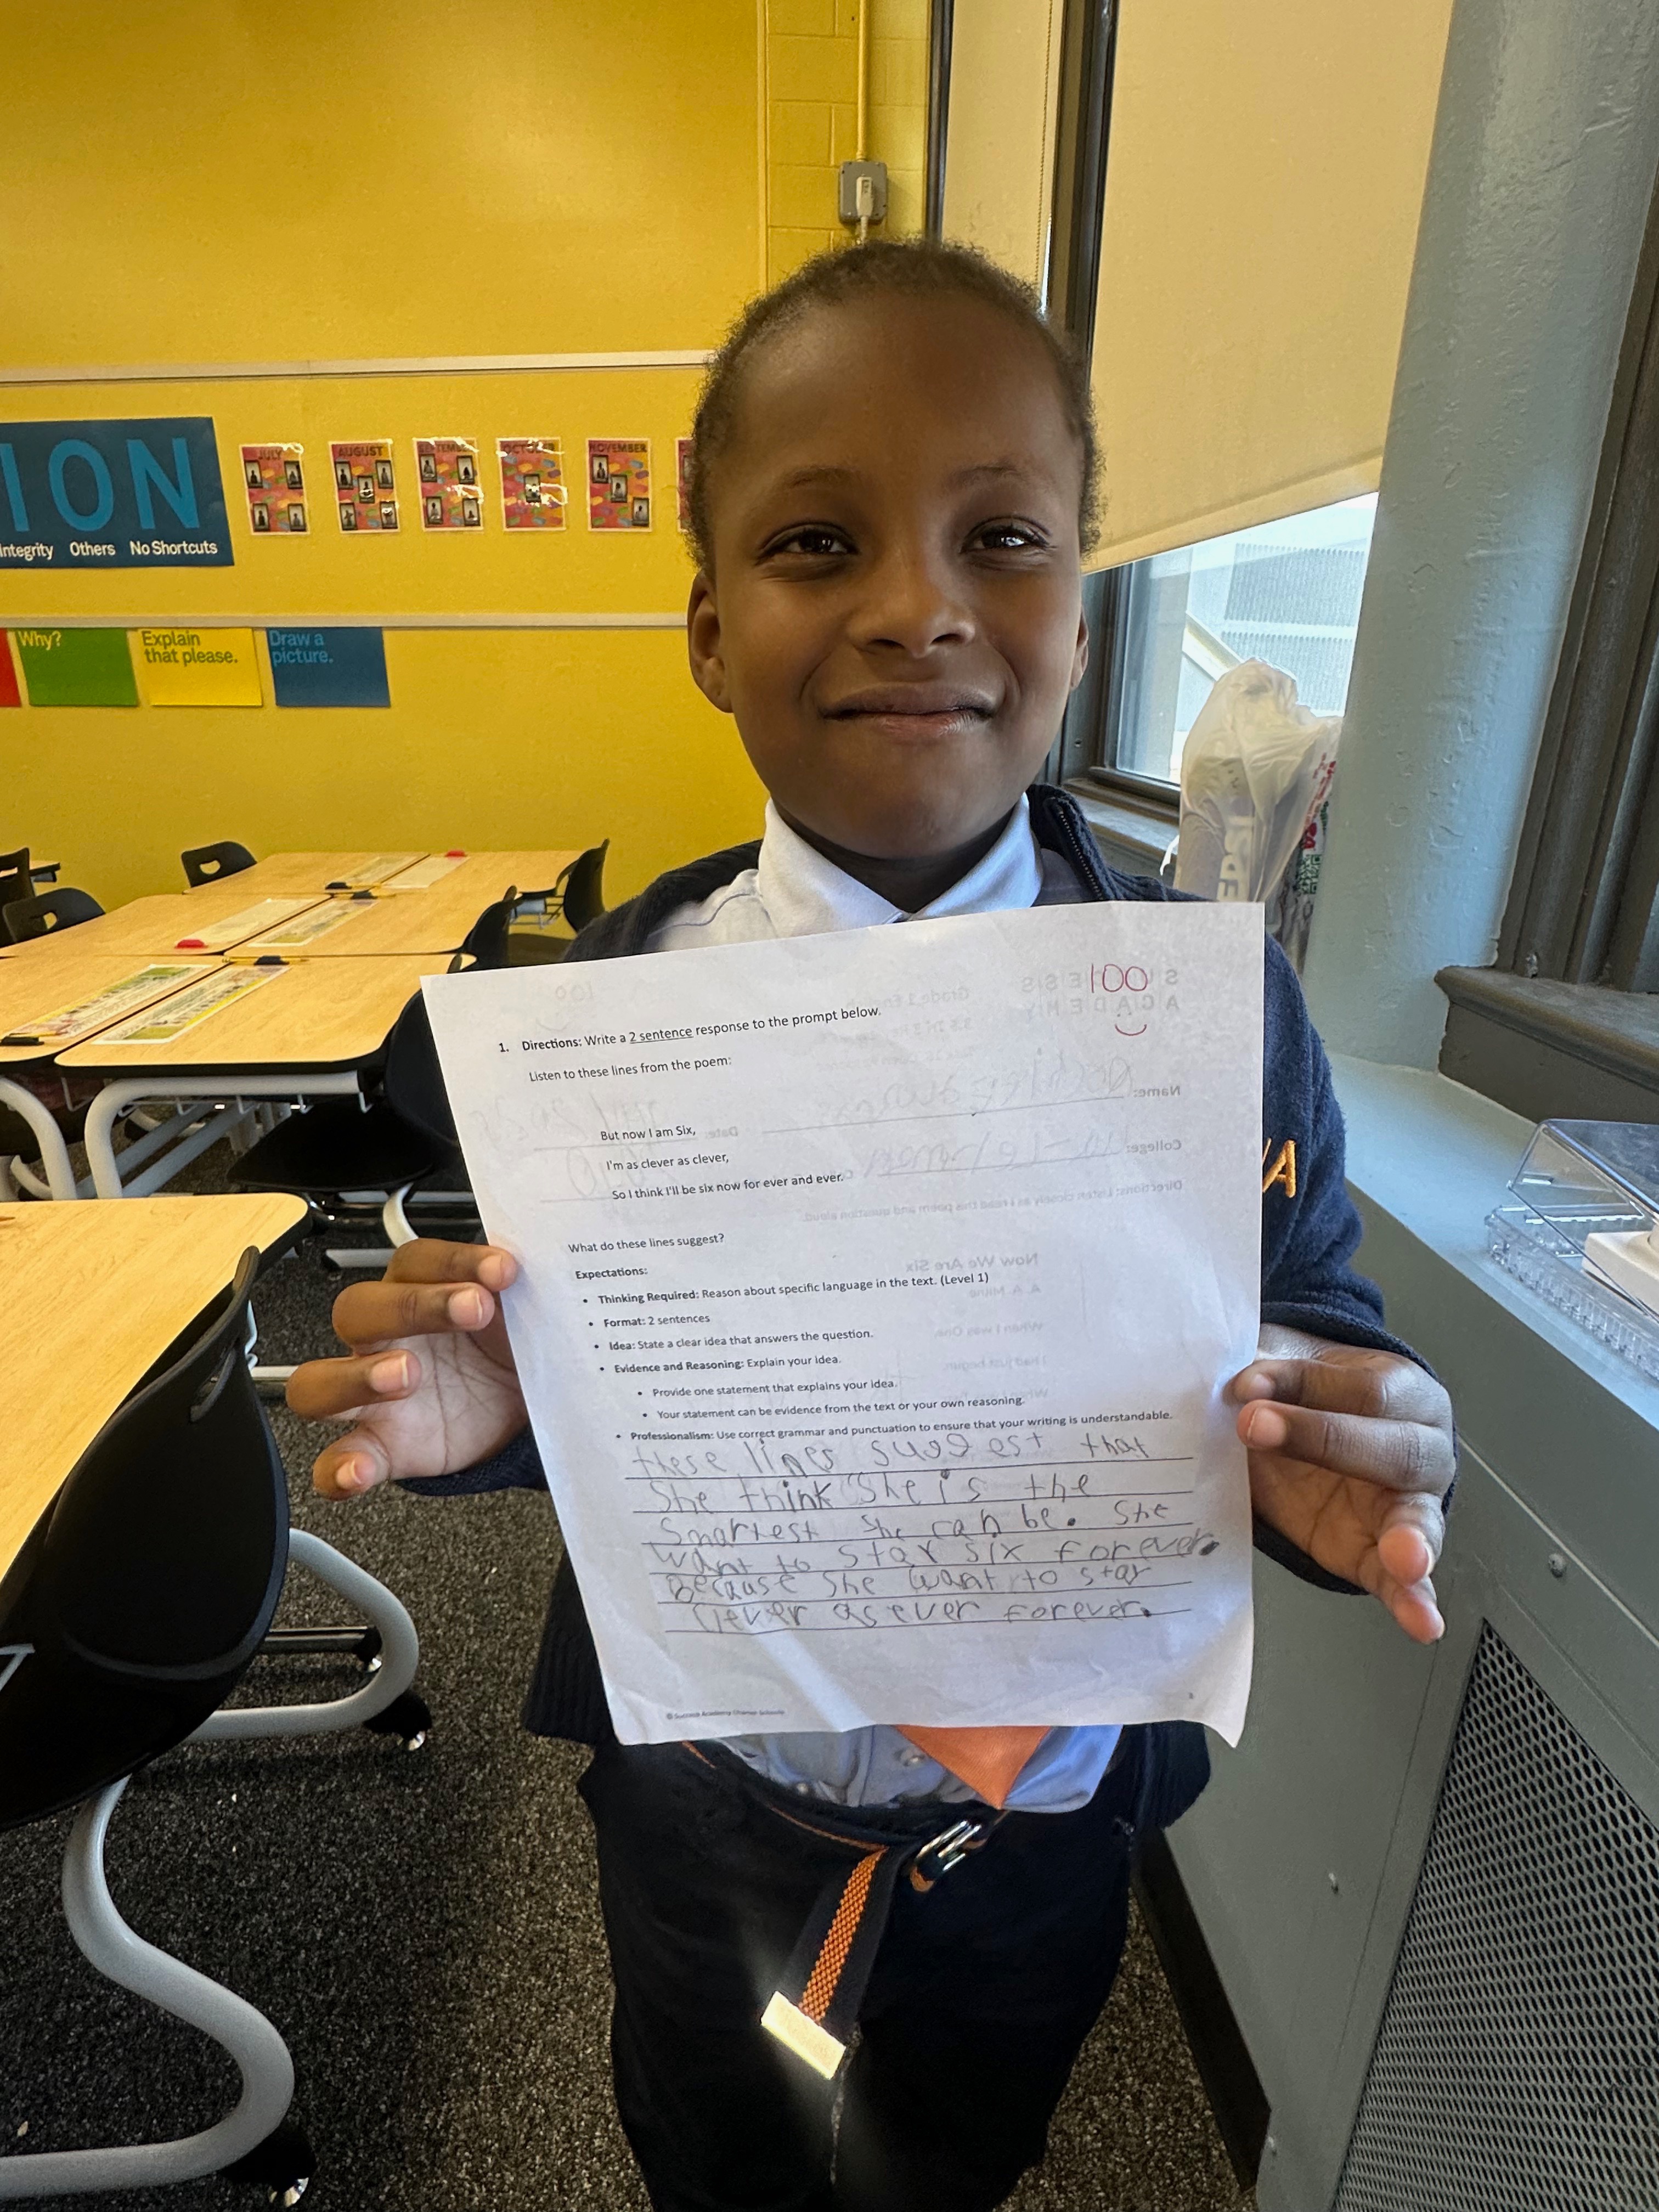 ION
Integrity Others No Shortcuts
JULY
AUGUST
SEPTEMBER
OCTOBER
NOVEMBER
Why?
Explain
that please.
Draw a
picture.
100
1. Directions: Write a 2 sentence response to the prompt below.
Listen to these lines from the poem:
But now I am Six,
I'm as clever as clever,
So I think I'll be six now for ever and ever.
What do these lines suggest?
Expectations:
• Thinking Required: Reason about specific language in the text. (Level 1)
• Format: 2 sentences
• Idea: State a clear idea that answers the question.
• Evidence and Reasoning: Explain your idea.
• Provide one statement that explains your idea.
• Your statement can be evidence from the text or your own reasoning.
• Professionalism: Use correct grammar and punctuation to ensure that your writing is understandable.
these lines suggest that
She think She is the
Smartest she can be. She
want to stay six forever.
Because she want to stay
clever as ever forever.
© Success Academy Charter Schools
A
SUCCESS
ACADEMY
Grade 1
Name:
Date:
College:
Directions: Listen closely as I read this poem and question aloud.
Now We Are Six
A. A. Milne
When I was One,
I had just begun.